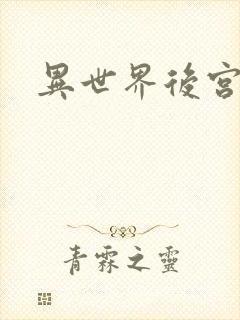 異世界後宮
青霖之靈